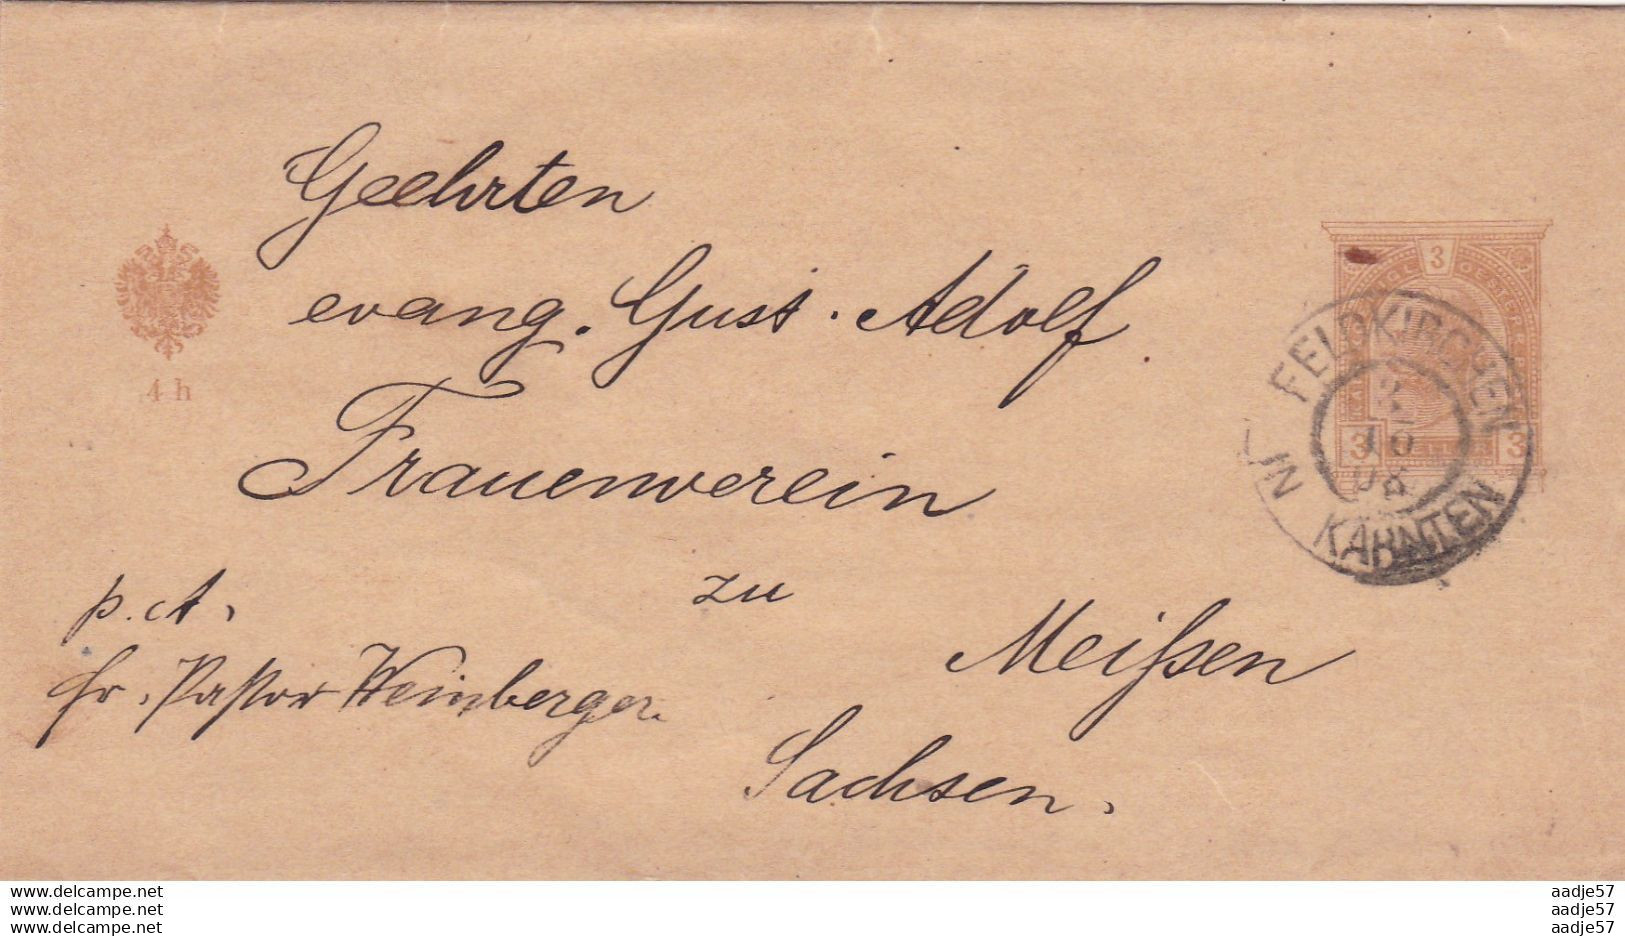 Geehrten
evang. Gust. Adolf
Frauenverein
zu
Meißen
Sachsen.
p. A.
Fr. Pastor Weinberger.
4 h
3
3
3
FELDKIRCHEN
IN
KÄRNTEN
www.delcampe.net
www.delcampe.net
www.delcampe.net
aadje57
aadje57
aadje57